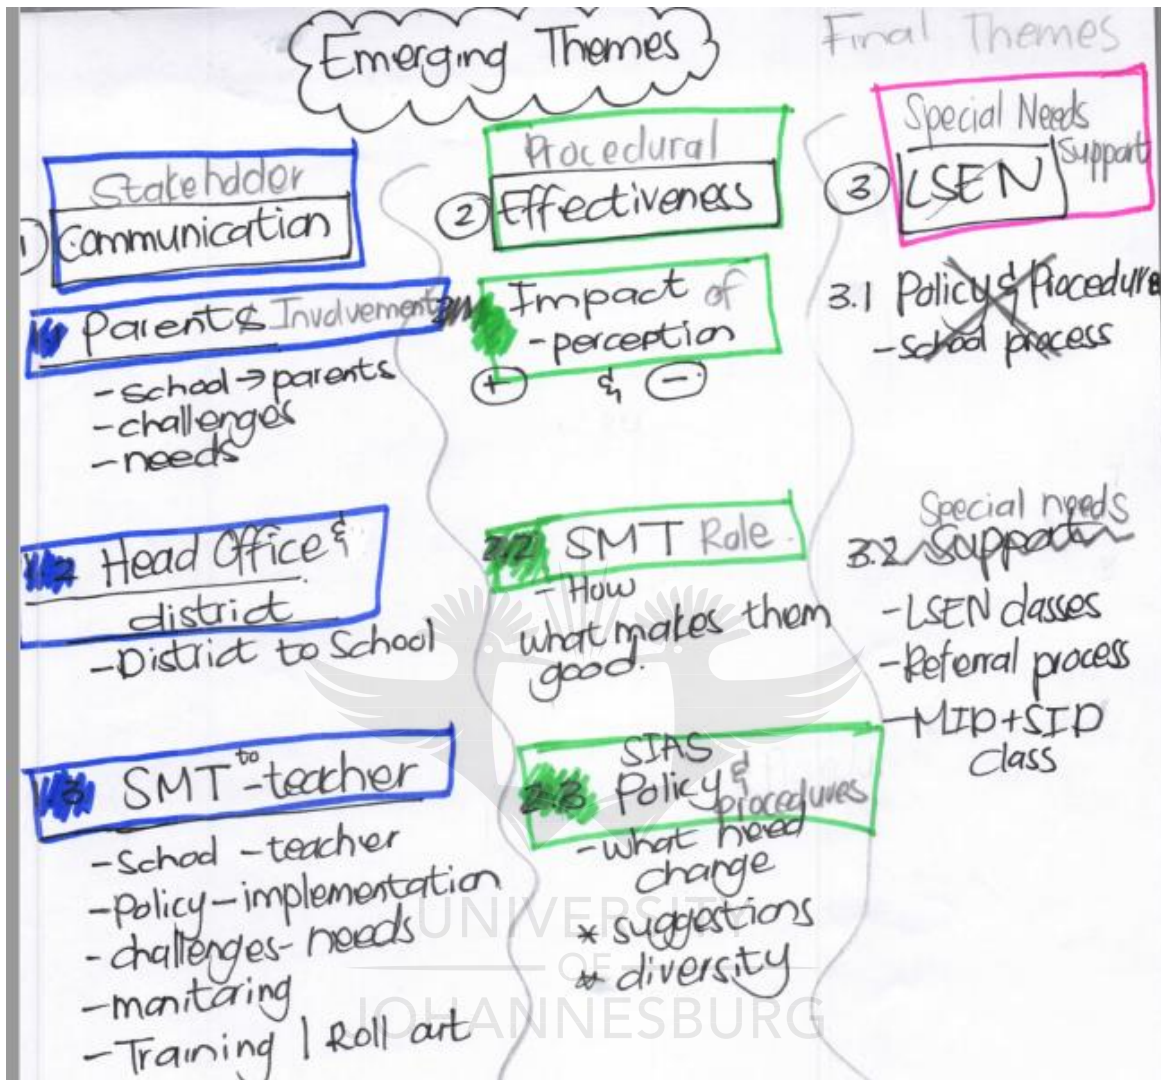 Emerging Themes
Final Themes
Stakeholder
1 Communication
Parents Involvement
- school → parents
- challenges
- needs
1.2 Head Office &
district
- District to School
3 SMT to - teacher
- School - teacher
- Policy - implementation
- challenges - needs
- monitoring
- Training | Roll out
Procedural
2 Effectiveness
Impact of
- perception
+ & -
2.2 SMT Role
- How
what makes them
good.
SIAS
2.3 Policy &
procedures
- what need
change
* suggestions
* diversity
Special Needs
Support
3 LSEN
3.1 Policy & Procedure
- school process
Special needs
3.2 Support
- LSEN classes
- Referral process
- MID + SID
class
UNIVERSITY
OF
JOHANNESBURG